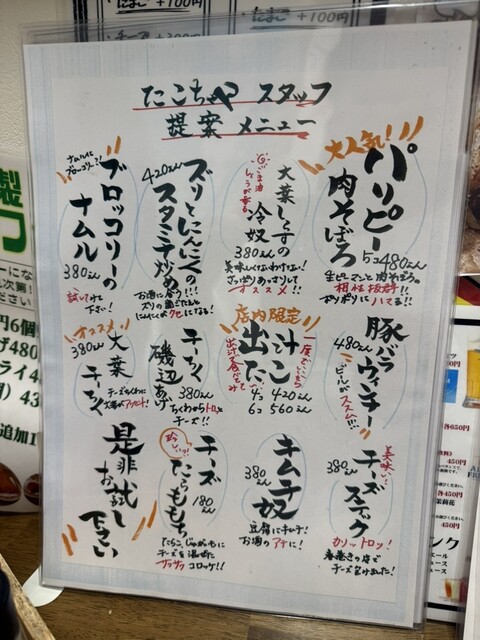 たまご +100円
たこちゃや スタッフ
提案メニュー
大人気!
パリピー
肉そぼろ
5コ 480えん
生ピーマンと肉そぼろの
相性抜群!!
ポリポリにハマる!!
大葉しらすの
冷奴
380えん
美味しくないわけない!
さっぱりあっさりして
オススメ!!
ズリとにんにくの
スタミナ炒め
420えん
お酒に合う!!!
ズリの歯ごたえと
にんにくがクセになる!
ナムルに
ブロッコリー?!
ブロッコリーの
ナムル
380えん
試してみて
下さい!
豚バラ
ウィンナー
480えん
ビールがススム!!!
店内限定
出汁
たこ
一度でいいから
出汁で食べてみ
4コ 420えん
6コ 560えん
チーちく
磯辺あげ
380えん
ちくわからトロッと
チーズ!!
オススメ
大葉
チーちく
380えん
チーズちくわに
大葉がアクセント!
美味しい
チーズスティック
380えん
カリッ トロッ!
春巻きの皮で
チーズを包けました!
キムチ奴
380えん
豆腐にキムチ!
お酒のアテに!
珍しい
チーズ
たらもも
180えん
たらこ、じゃがいもに
チーズを混ぜた
サクサクコロッケ!!
是非
お試し
下さい